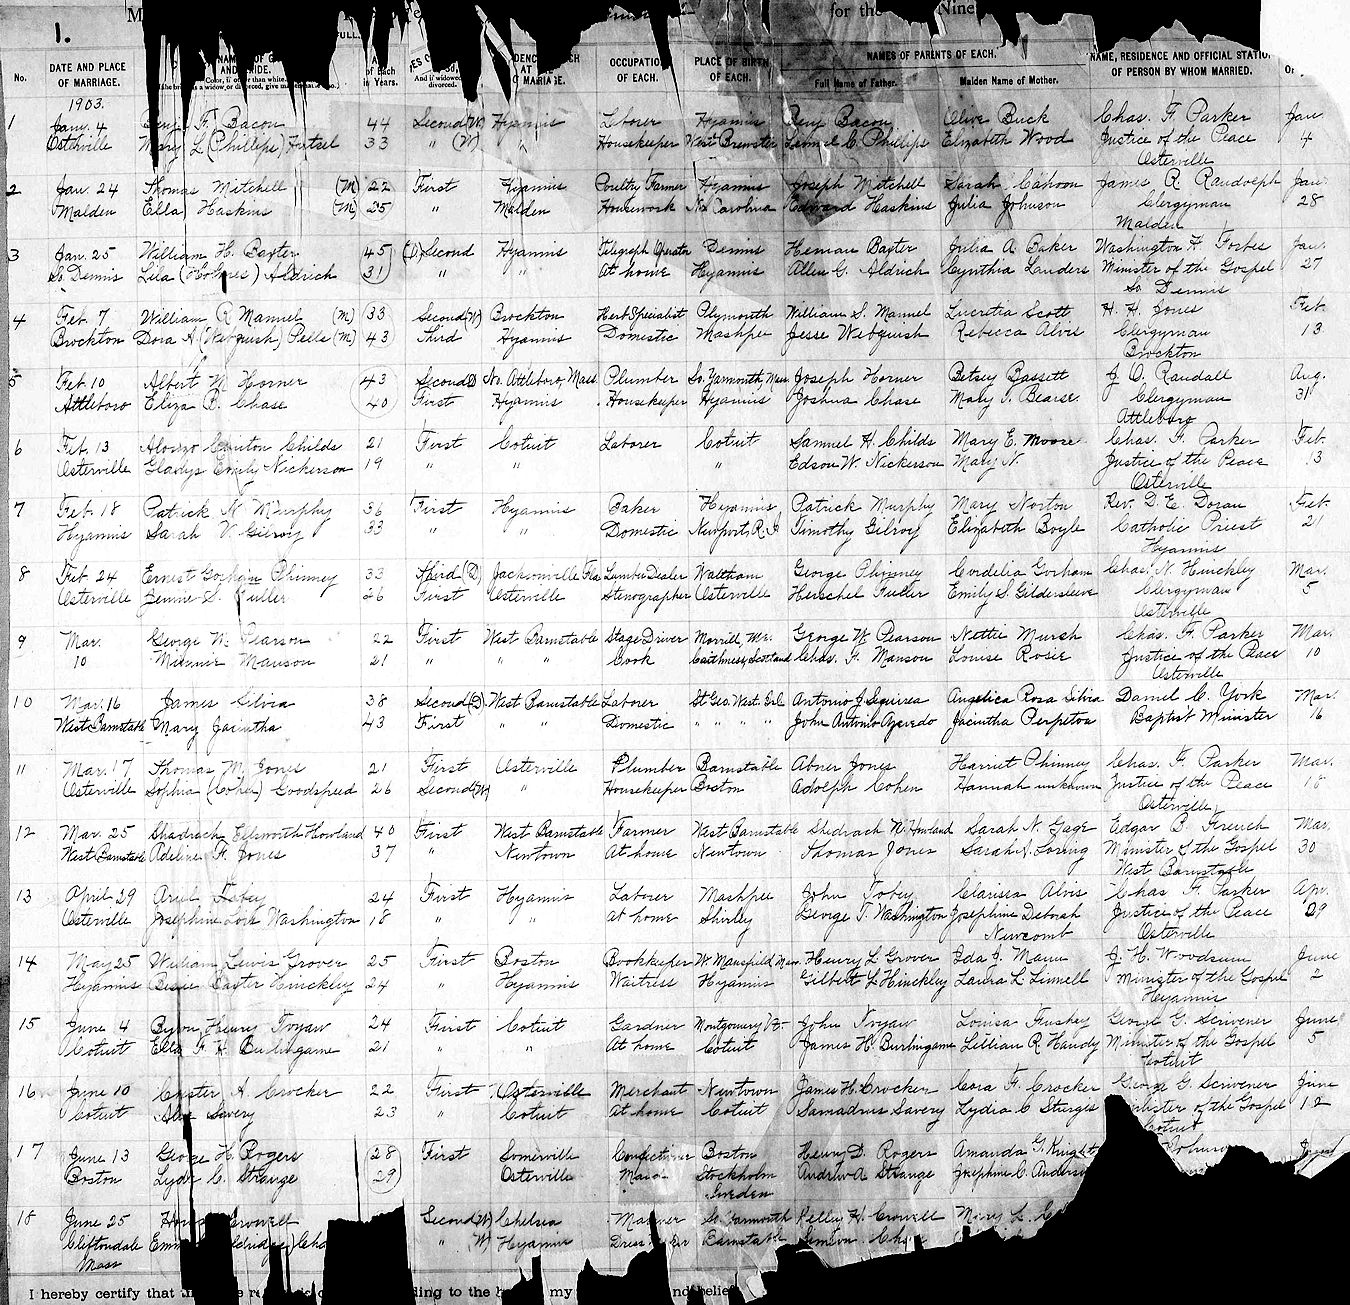 1.
for the Nine
DATE AND PLACE OF MARRIAGE.
No.
Color, if other than white.
OCCUPATION OF EACH.
PLACE OF BIRTH OF EACH.
NAMES OF PARENTS OF EACH.
Full Name of Father.
Maiden Name of Mother.
NAME, RESIDENCE AND OFFICIAL STATION OF PERSON BY WHOM MARRIED.
1903.
1 Jany. 4 Benj. F. Bacon 44 Second (W) Hyannis Laborer Hyannis Benj Bacon Olive Buck Chas. F. Parker Jan
Osterville Mary L (Phillips) Hutsel 33 " (W) " Housekeeper West Brewster Lemuel C Phillips Elizabeth Wood Justice of the Peace 4
Osterville
2 Jan. 24 Thomas Mitchell (M) 22 First Hyannis Poultry Farmer Hyannis Joseph Mitchell Sarah Cahoon James R Randolph Jan
Malden Ella Haskins (M) 25 " Malden Housework No Carolina Edward Haskins Julia Johnson Clergyman 28
Malden
3 Jan. 25 William H. Baxter 45 (D) Second Hyannis Telegraph Operator Dennis Heman Baxter Julia A Baker Washington H. Forbes Jan.
So. Dennis Lila (Holmes) Aldrich 31 " " At home Hyannis Allen G. Aldrich Cynthia Landers Minister of the Gospel 27
So Dennis
4 Feb. 7 William R Manuel (M) 33 Second (W) Brockton Herb Specialist Plymouth William S. Manuel Lucretia Scott H. H. Jones Feb.
Brockton Dora A (Webquish) Pells (M) 43 Third Hyannis Domestic Mashpee Jesse Webquish Rebecca Alvis Clergyman 13
Brockton
5 Feb. 10 Albert M Horner 43 Second D No. Attleboro, Mass. Plumber So. Yarmouth, Mass Joseph Horner Betsey Bassett J O. Randall Aug.
Attleboro Eliza B. Chase 40 First Hyannis Housekeeper Hyannis Joshua Chase Mary S. Bearse Clergyman 31
Attleboro
6 Feb. 13 Alonzo Clinton Childs 21 First Cotuit Laborer Cotuit Samuel H. Childs Mary E. Moore Chas. F. Parker Feb.
Osterville Gladys Emily Nickerson 19 " " " Edson W. Nickerson Mary N. Justice of the Peace 13
Osterville
7 Feb. 18 Patrick N Murphy 36 First Hyannis Baker Hyannis Patrick Murphy Mary Norton Rev. D. E. Doran Feb.
Hyannis Sarah V. Gilroy 33 " " Domestic Newport, R.I. Timothy Gilroy Elizabeth Boyle Catholic Priest 21
Hyannis
8 Feb. 24 Ernest Gorham Phinney 33 Third (D) Jacksonville Fla Lumber Dealer Waltham George Phinney Cordelia Gorham Chas. N. Hinckley Mar.
Osterville Jennie S. Fuller 26 First Osterville Stenographer Osterville Herschel Fuller Emily S. Gildersleeve Clergyman 5
Osterville
9 Mar. George W. Pearson 22 First West Barnstable Stage Driver Morrill, Me. George W Pearson Nettie Mursh Chas. F. Parker Mar.
10 Minnie Manson 21 " " " Cook Caithness, Scotland Chas. F. Manson Louise Rosie Justice of the Peace 10
Osterville
10 Mar. 16 James Silvia 38 Second (D) West Barnstable Laborer St Geo. West. Isl. Antonio J. Sequirea Angelica Rosa Silvia Daniel C. York Mar.
West Barnstable Mary Jacintha 43 First " " Domestic " " " " John Antonio Azevedo Jacintha Perpetoa Baptist Minister 16
11 Mar. 17 Thomas M. Jones 21 First Osterville Plumber Barnstable Abner Jones Harriet Phinney Chas. F. Parker Mar.
Osterville Sophia (Cohen) Goodspeed 26 Second (W) " Housekeeper Boston Adolph Cohen Hannah unknown Justice of the Peace 18
Osterville
12 Mar. 25 Shadrach Ellsworth Howland 40 First West Barnstable Farmer West Barnstable Shedrach N. Howland Sarah N. Gage Edgar B. French Mar.
West Barnstable Adeline F. Jones 37 " Newtown At home Newtown Thomas Jones Sarah A. Loring Minister of the Gospel 30
West Barnstable
13 April 29 Ariel Tobey 24 First Hyannis Laborer Mashpee John Tobey Clarissa Alvis Chas F. Parker Apr.
Osterville Josephine Washington 18 " " At home Shirley George T. Washington Josephine Deborah Justice of the Peace 29
Newcomb Osterville
14 May 25 William Lewis Grover 25 First Boston Bookkeeper W Mansfield, Mass. Henry L Grover Ida J. Mann J. H. Woodsum June
Hyannis Bessie Baxter Hinckley 24 " Hyannis Waitress Hyannis Gilbert L Hinckley Laura L Linnell Minister of the Gospel 2
Hyannis
15 June 4 Byron Henry Noyaw 24 First Cotuit Gardner Montgomery Vt John Noyaw Louisa George G. Scrivener June
Cotuit Ella F. H. Burlingame 21 " " At home Cotuit James H. Burlingame Lillian R Handy Minister of the Gospel 5
Cotuit
16 June 10 Chester A Crocker 22 First Osterville Merchant Newtown James H. Crocker Cora F. Crocker George G. Scrivener June
Cotuit Savery 23 " Cotuit At home Cotuit Samadrus Savery Lydia C Sturges Minister of the Gospel 12
Cotuit
17 June 13 George H. Rogers 28 First Somerville Confectioner Boston Henry D. Rogers Amanda G. Knight
Boston C. Strange 29 Osterville Stockholm Andrew A Strange Josephine C.
Sweden
18 June 25 Crowell Second (W) Chelsea Mariner So Yarmouth H. Crowell Mary L.
Cliftondale " (W) Hyannis Barnstable
Mass
I hereby certify that